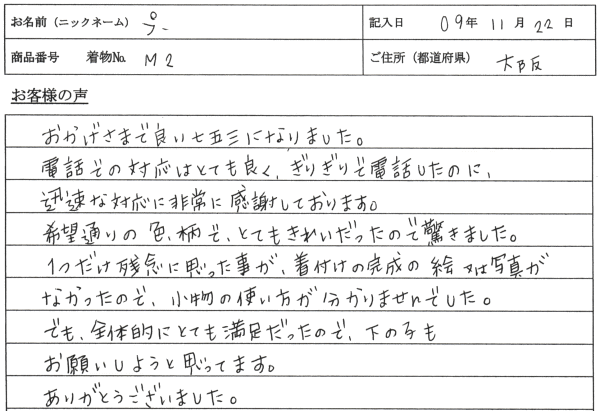 お名前（ニックネーム） プー 記入日 09年 11月 22日
商品番号 着物No. M2 ご住所（都道府県） 大阪
お客様の声
おかげさまで良い七五三になりました。
電話での対応はとても良く、ぎりぎりで電話したのに、
迅速な対応に非常に感謝しております。
希望通りの色、柄で、とてもきれいだったので驚きました。
1つだけ残念に思った事が、着付けの完成の絵又は写真が
なかったので、小物の使い方が分かりませんでした。
でも、全体的にとても満足だったので、下の子も
お願いしようと思ってます。
ありがとうございました。